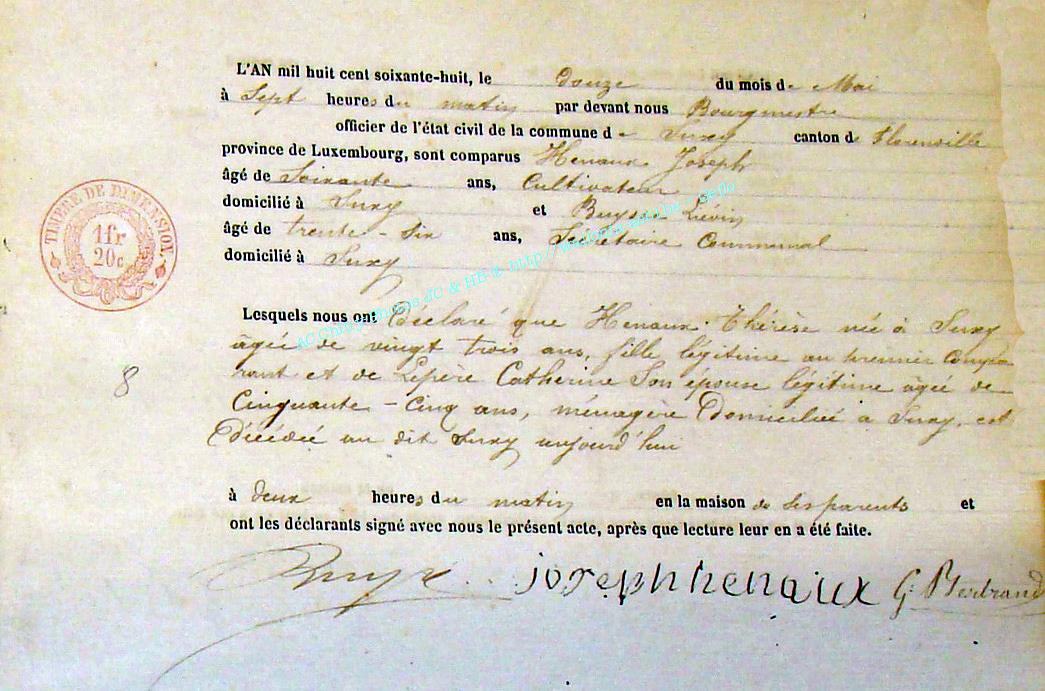 L'AN mil huit cent soixante-huit, le douze du mois de Mai
à Sept heures du matin par devant nous Bourgmestre
officier de l'état civil de la commune de Suxy canton de Florenville
province de Luxembourg, sont comparus Henaux Joseph
âgé de Soixante ans, Cultivateur
domicilié à Suxy et Buysse Liévin
âgé de trente-six ans, Secrétaire Communal
domicilié à Suxy
TIMBRE DE DIMENSION.
1fr
20c
Lesquels nous ont Déclaré que Henaux Thérèse née à Suxy
âgée de vingt trois ans, fille légitime au premier Compa
rant et de Lepère Catherine Son épouse légitime âgée de
Cinquante-Cinq ans, ménagère Domiciliée à Suxy, est
Décédée au dit Suxy aujourd'hui
8
à deux heures du matin en la maison de ses parents et
ont les déclarants signé avec nous le présent acte, après que lecture leur en a été faite.
Buysse joseph henaux G. Bertrand